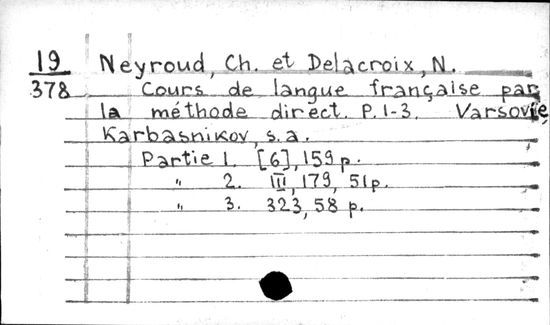 19 Neyroud, Ch. et Delacroix, N.
378 Cours de langue française par
la méthode direct. P. 1-3. Varsovie,
Karbasnikov, s. a.
Partie 1. [6], 159 p.
" 2. III, 179, 51 p.
" 3. 323, 58 p.